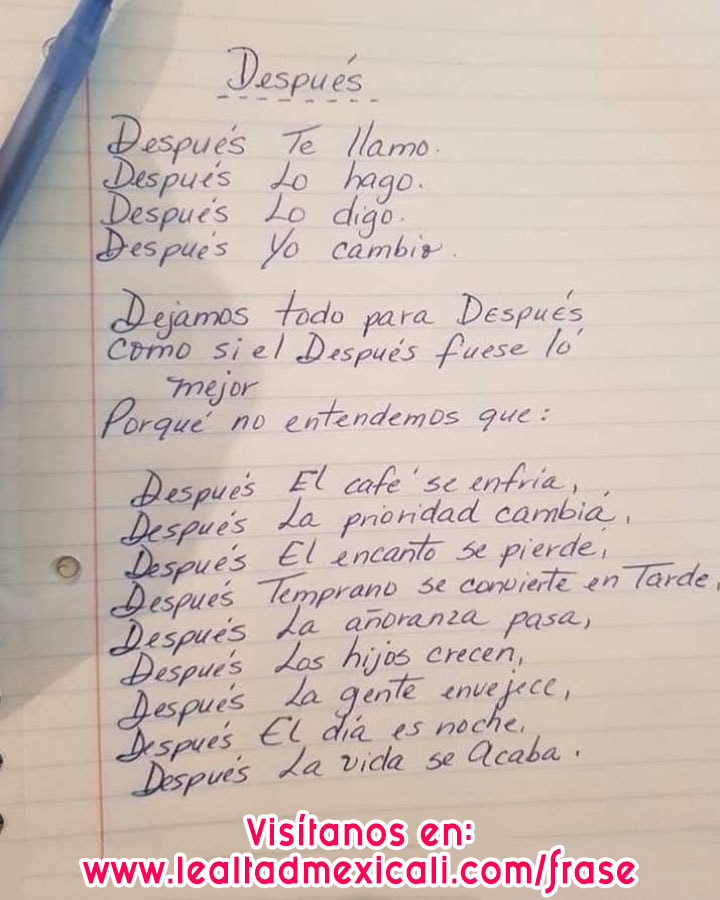 Después
Después Te llamo.
Después Lo hago.
Después Lo digo.
Después Yo cambio.
Dejamos todo para Después
Como si el Después fuese lo
mejor
Porqué no entendemos que:
Después El café se enfria,
Después La prioridad cambia,
Después El encanto se pierde,
Después Temprano se convierte en Tarde,
Después La añoranza pasa,
Después Los hijos crecen,
Después La gente envejece,
Después El día es noche,
Después La vida se Acaba.
Visítanos en:
www.lealtadmexicali.com/frase